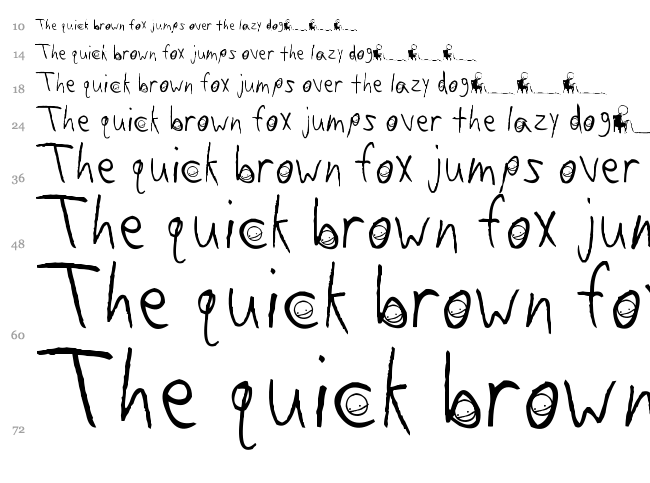 10 The quick brown fox jumps over the lazy dog
14 The quick brown fox jumps over the lazy dog
18 The quick brown fox jumps over the lazy dog
24 The quick brown fox jumps over the lazy dog
36 The quick brown fox jumps over
48 The quick brown fox jum
60 The quick brown fo
72 The quick brown